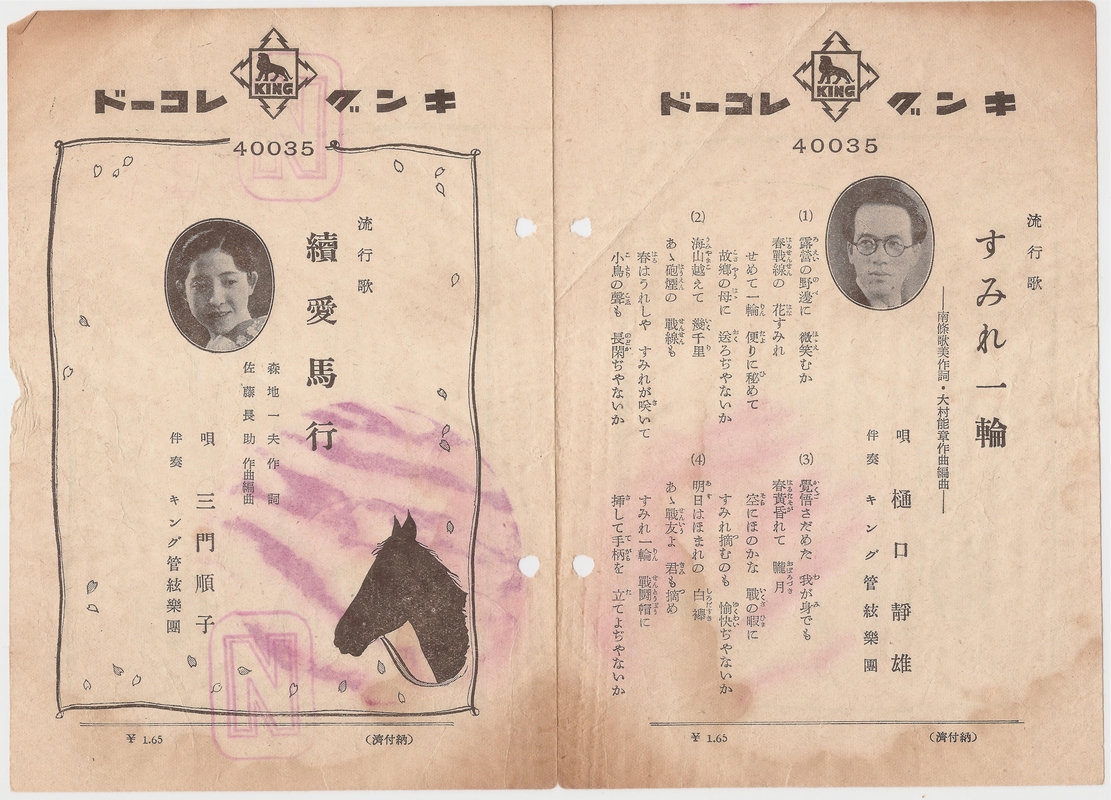 キング KING レコード
40035
流行歌
すみれ一輪
―南條歌美作詞・大村能章作曲編曲―
唄 樋口靜雄
伴奏 キング管絃樂團
(1)
露營の野邊に 微笑むか
春戰線の 花すみれ
せめて一輪 便りに秘めて
故鄕の母に 送ろぢやないか
(2)
海山越えて 幾千里
あゝ砲煙の 戰線も
春はうれしや すみれが咲いて
小鳥の聲も 長閑ぢやないか
(3)
覺悟さだめた 我が身でも
春黄昏れて 朧月
空にほのかな 戰の暇に
すみれ摘むのも 愉快ぢやないか
(4)
明日はほまれの 白襷
あゝ戰友よ 君も摘め
すみれ一輪 戰鬪帽に
挿して手柄を 立てよぢやないか
¥ 1.65
(濟付納)
キング KING レコード
40035
流行歌
續愛馬行
森地一夫作詞
佐藤長助作曲編曲
唄 三門順子
伴奏 キング管絃樂團
N
N
¥ 1.65
(濟付納)